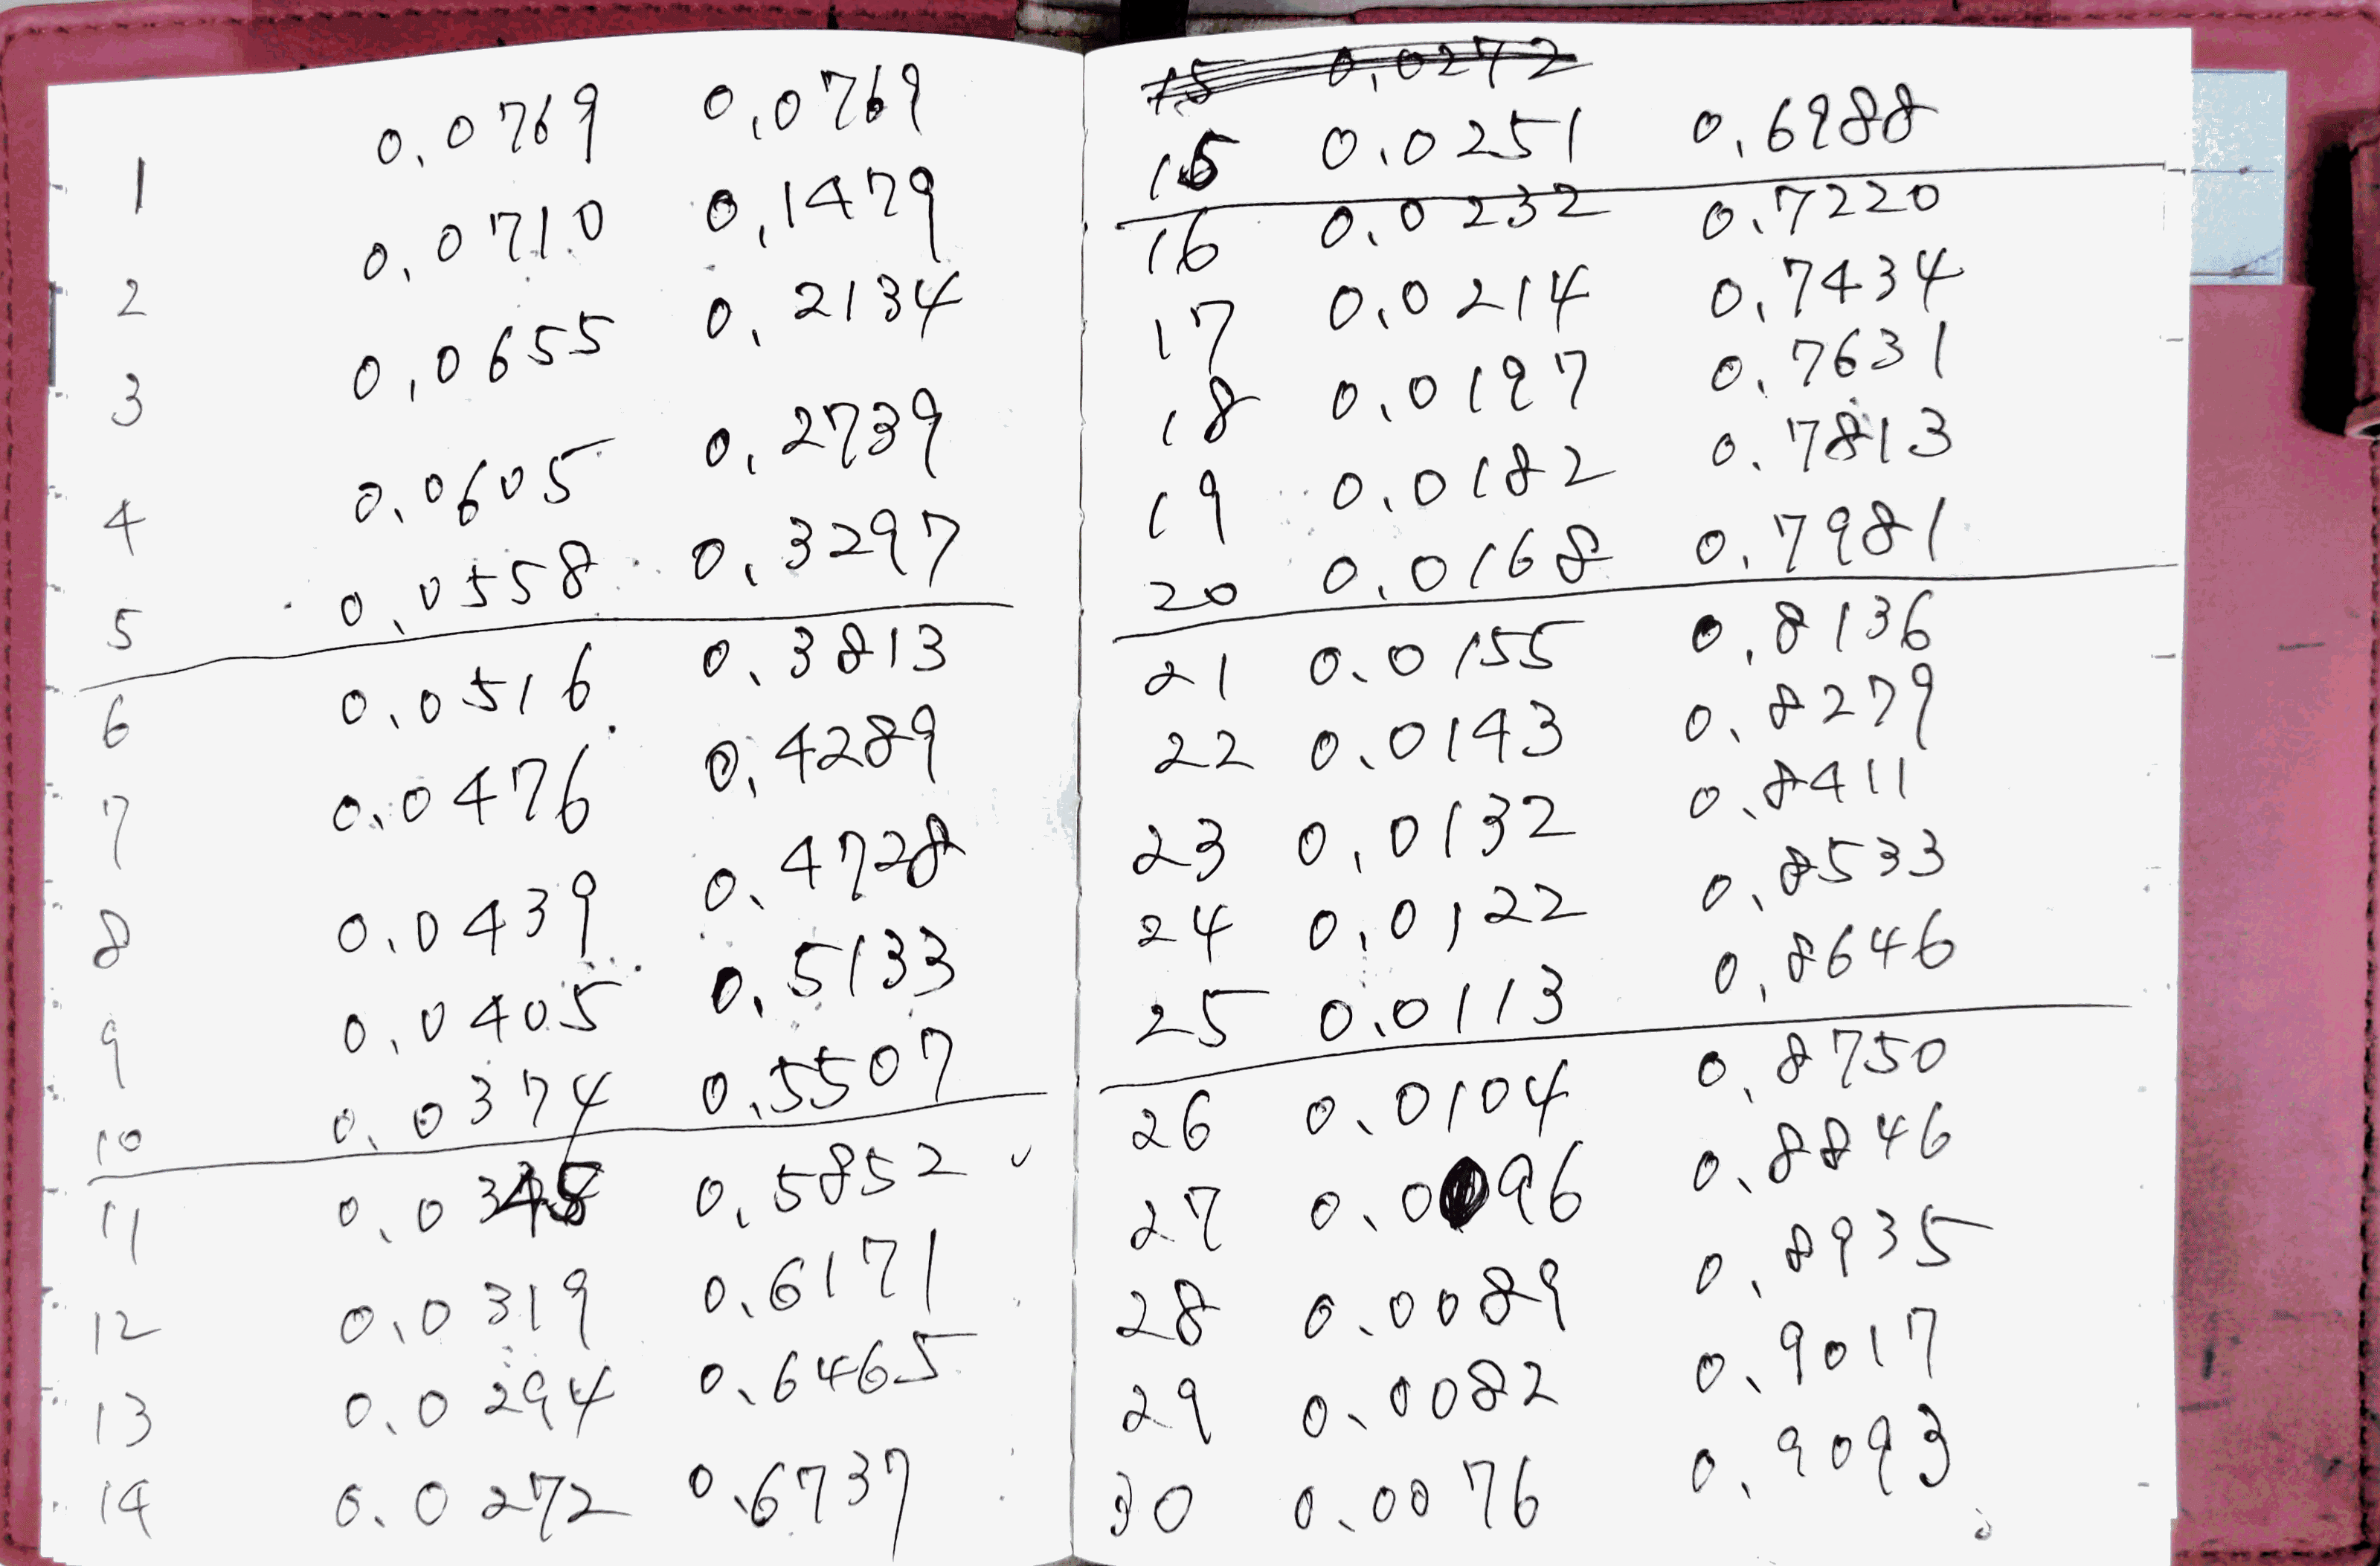 1 0.0769 0.0769
2 0.0710 0.1479
3 0.0655 0.2134
4 0.0605 0.2739
5 0.0558 0.3297
6 0.0516 0.3813
7 0.0476 0.4289
8 0.0439 0.4728
9 0.0405 0.5133
10 0.0374 0.5507
11 0.0345 0.5852
12 0.0319 0.6171
13 0.0294 0.6465
14 0.0272 0.6737
15 0.0272
15 0.0251 0.6988
16 0.0232 0.7220
17 0.0214 0.7434
18 0.0197 0.7631
19 0.0182 0.7813
20 0.0168 0.7981
21 0.0155 0.8136
22 0.0143 0.8279
23 0.0132 0.8411
24 0.0122 0.8533
25 0.0113 0.8646
26 0.0104 0.8750
27 0.0096 0.8846
28 0.0089 0.8935
29 0.0082 0.9017
30 0.0076 0.9093